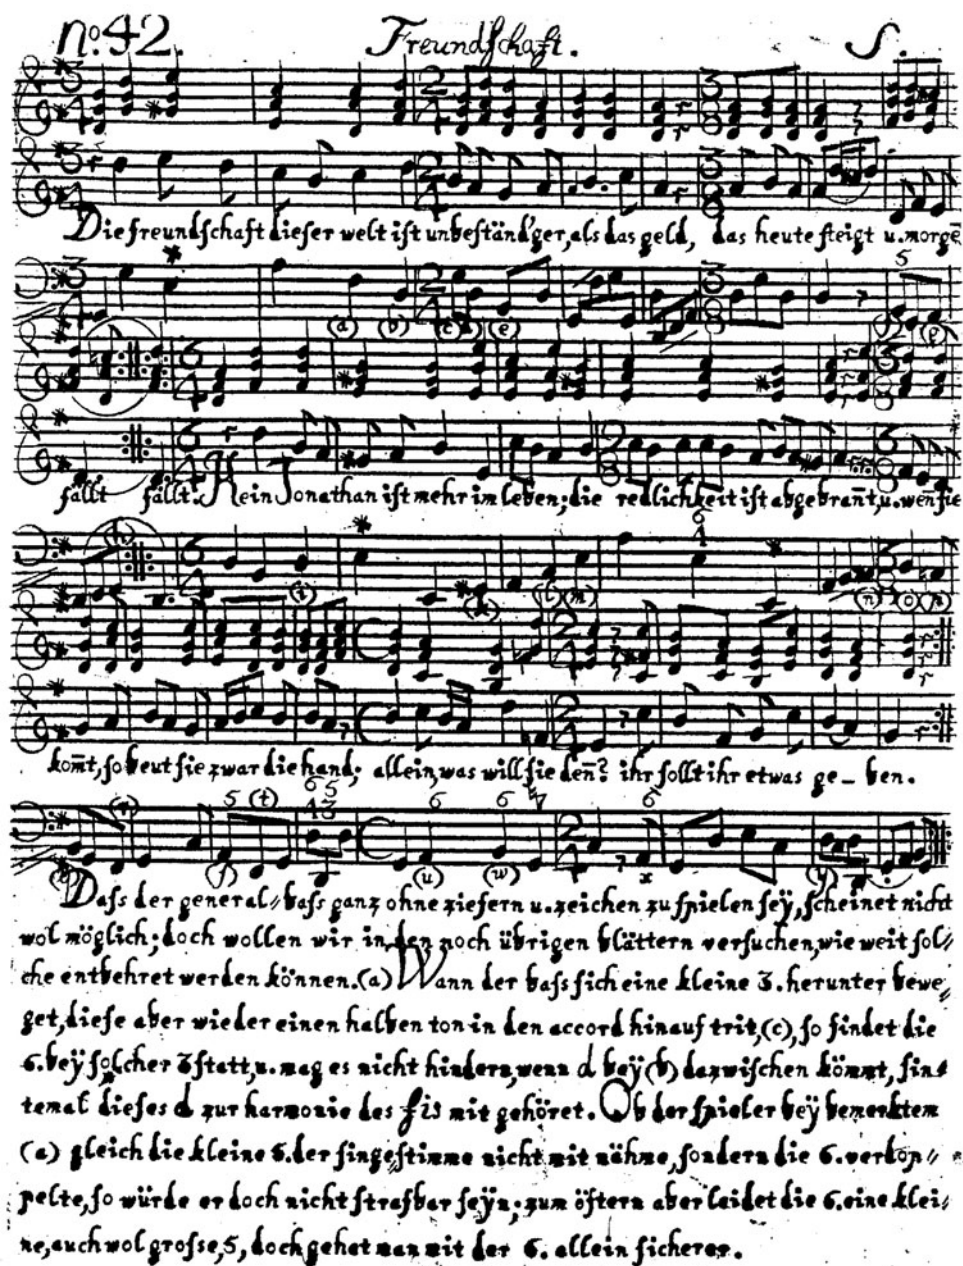 nº. 42. Freundſchaft. S.
Die freundſchaft dieſer welt iſt unbeſtänd'ger, als das geld, das heute ſteigt u. morgē
5
(a) (b) (c) (e)
fällt fällt. Kein Jonathan iſt mehr im leben; die redlichkeit iſt abgebrañt, u. weñ ſie
6
4
(h)
(i) (k) (l) (m) (n) (o) (p)
kom̄t, ſo beut ſie zwar die hand; allein, was will ſie deñ? ihr ſollt ihr etwas ge_ben.
5 (t) 6 5 6 6 6
4 3
(r) (ſ) (u) (w) x (y)
Daſs der general-baſs ganz ohne ziefern u. zeichen zu ſpielen ſeÿ, ſcheinet nicht
wol möglich; doch wollen wir in den noch übrigen blättern verſuchen, wie weit ſol-
che entbehret werden können. (a) Wann der baſs ſich eine kleine 3. herunter bewe-
get, dieſe aber wieder einen halben ton in den accord hinauf trit, (c), ſo findet die
6. beÿ ſolcher 3 ſtatt, u. mag es nicht hindern, wenn d beÿ (b) dazwiſchen kömmt, ſin-
temal dieſes d zur harmonie des fis mit gehöret. Ob der ſpieler beÿ bemerktem
(a) gleich die kleine 5. der ſingeſtimme nicht mit nähme, ſondern die 6. verdop-
pelte, ſo würde er doch nicht ſtrafbar ſeÿn; zum öftern aber leidet die 6. eine klei-
ne, auch wol groſse, 5, doch gehet man mit der 6. allein ſicherer.